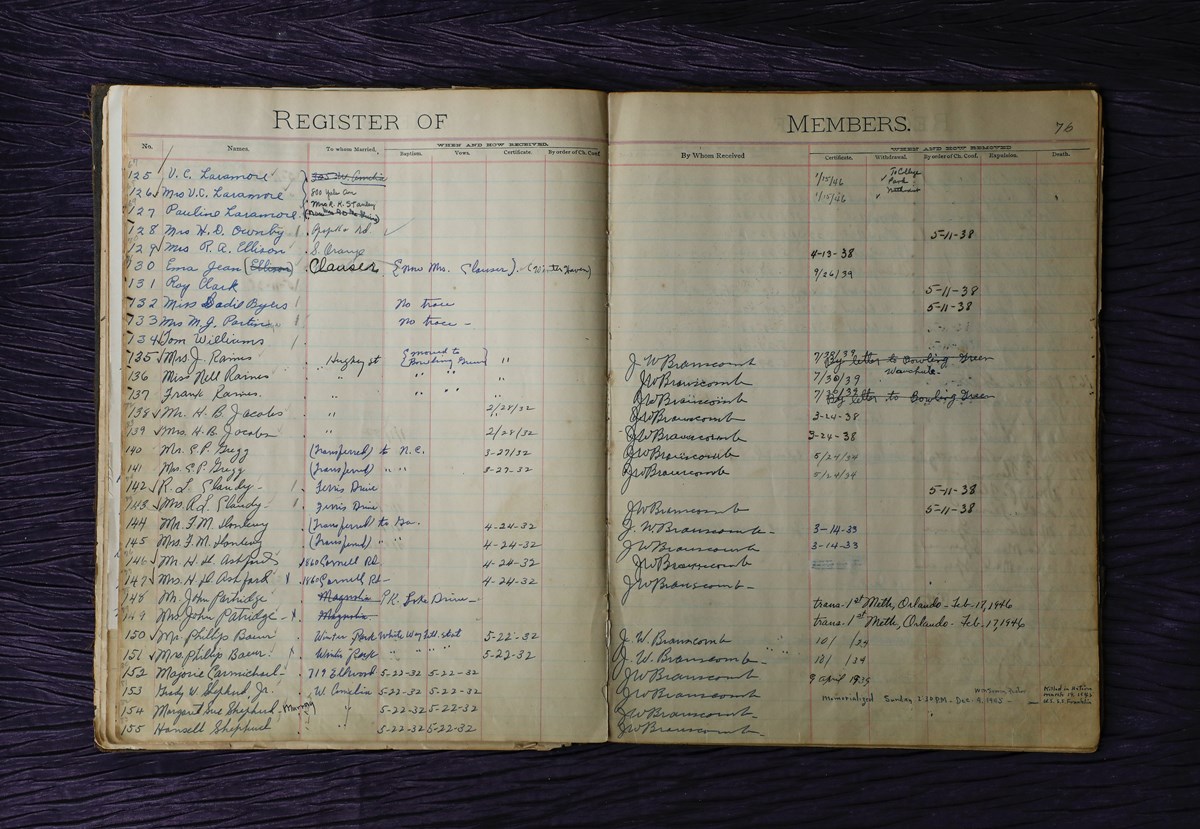 REGISTER OF MEMBERS. 76
No. Names. To whom Married, WHEN AND HOW RECEIVED. Baptism. Vows. Certificate. By order of Ch. Conf.
By Whom Received WHEN AND HOW REMOVED Certificate. Withdrawal. By order of Ch. Conf. Expulsion. Death.
125 V. C. Laramore 1/15/46 To College Park
126 Mrs V.C. Laramore 1/15/46
127 Pauline Laramore Mrs R. K. Stanley
128 Mrs H. D. Ownby 5-11-38
129 Mrs R. A. Ellison S. Orange 4-13-38
130 Ema Jean (Ellison) Clauser (now Mrs. Clauser). (Winter Haven) 9/26/39
131 Roy Clark 5-11-38
132 Miss Sadie Byers No trace 5-11-38
133 Mrs M. J. Partin No trace -
134 Tom Williams
135 Mrs. J. Raines Hughey st (moved to Bowling Green) " J. W. Branscomb 7/30/39 By letter to Bowling Green
136 Miss Nell Raines " " " " JW Branscomb 7/30/39 Wauchula -
137 Frank Raines. " " " JW Branscomb 7/30/39 By letter to Bowling Green
138 Mr. H. B. Jacobs " 2/28/32 JW Branscomb 3-24-38
139 Mrs. H. B. Jacobs " 2/28/32 JW Branscomb 3-24-38
140 Mr. C. P. Gregg (Transferred) to N. C. 3-27/32 JW Branscomb 5/24/34
141 Mrs. C. P. Gregg (Transferred) " " " 3-27-32 JW Branscomb 5/24/34
142 R. L. Gandy - Ferris Drive 5-11-38
143 Mrs. R. L. Gandy - Ferris Drive JW Branscomb 5-11-38
144 Mr. F. M. (Transferred) to Ga. 4-24-32 J. W. Branscomb - 3-14-33
145 Mrs. F. M. (Transferred) " " 4-24-32 JW Branscomb 3-14-33
146 Mr. H. H. Ashford 1860 Cornell Rd. 4-24-32 JW Branscomb
147 Mrs. H. H. Ashford 1860 Cornell Rd - 4-24-32 JW Branscomb -
148 Mr. John Partridge Magnolia PK. Lake Drive - trans. 1st Meth, Orlando - Feb. 17, 1946
149 Mrs John Patridge - Magnolia trans. 1st Meth, Orlando - Feb. 17, 1946
150 Mr. Phillip Baur Winter Park White Way 5-22-32 J. W. Branscomb 10/ /34
151 Mrs. Phillip Baur. Winter Park " " " " 5-22-32 J. W. Branscomb - 10/ /34
152 Marjorie Carmichael - 719 Edwood 5-22-32 5-22-32 JW Branscomb 9 April 1935
153 Grady W. Shepherd, Jr. W. Concilia 5-22-32 5-22-32 JW Branscomb Memorialized Sunday 2:30 P.M. - Dec. 9, 1945 - Killed in Action March 19, 1945 U.S.S. Franklin
154 Margaret Sue Shepherd - " 5-22-32 5-22-32 JW Branscomb -
155 Hansell Shepherd " 5-22-32 5-22-32 JW Branscomb -